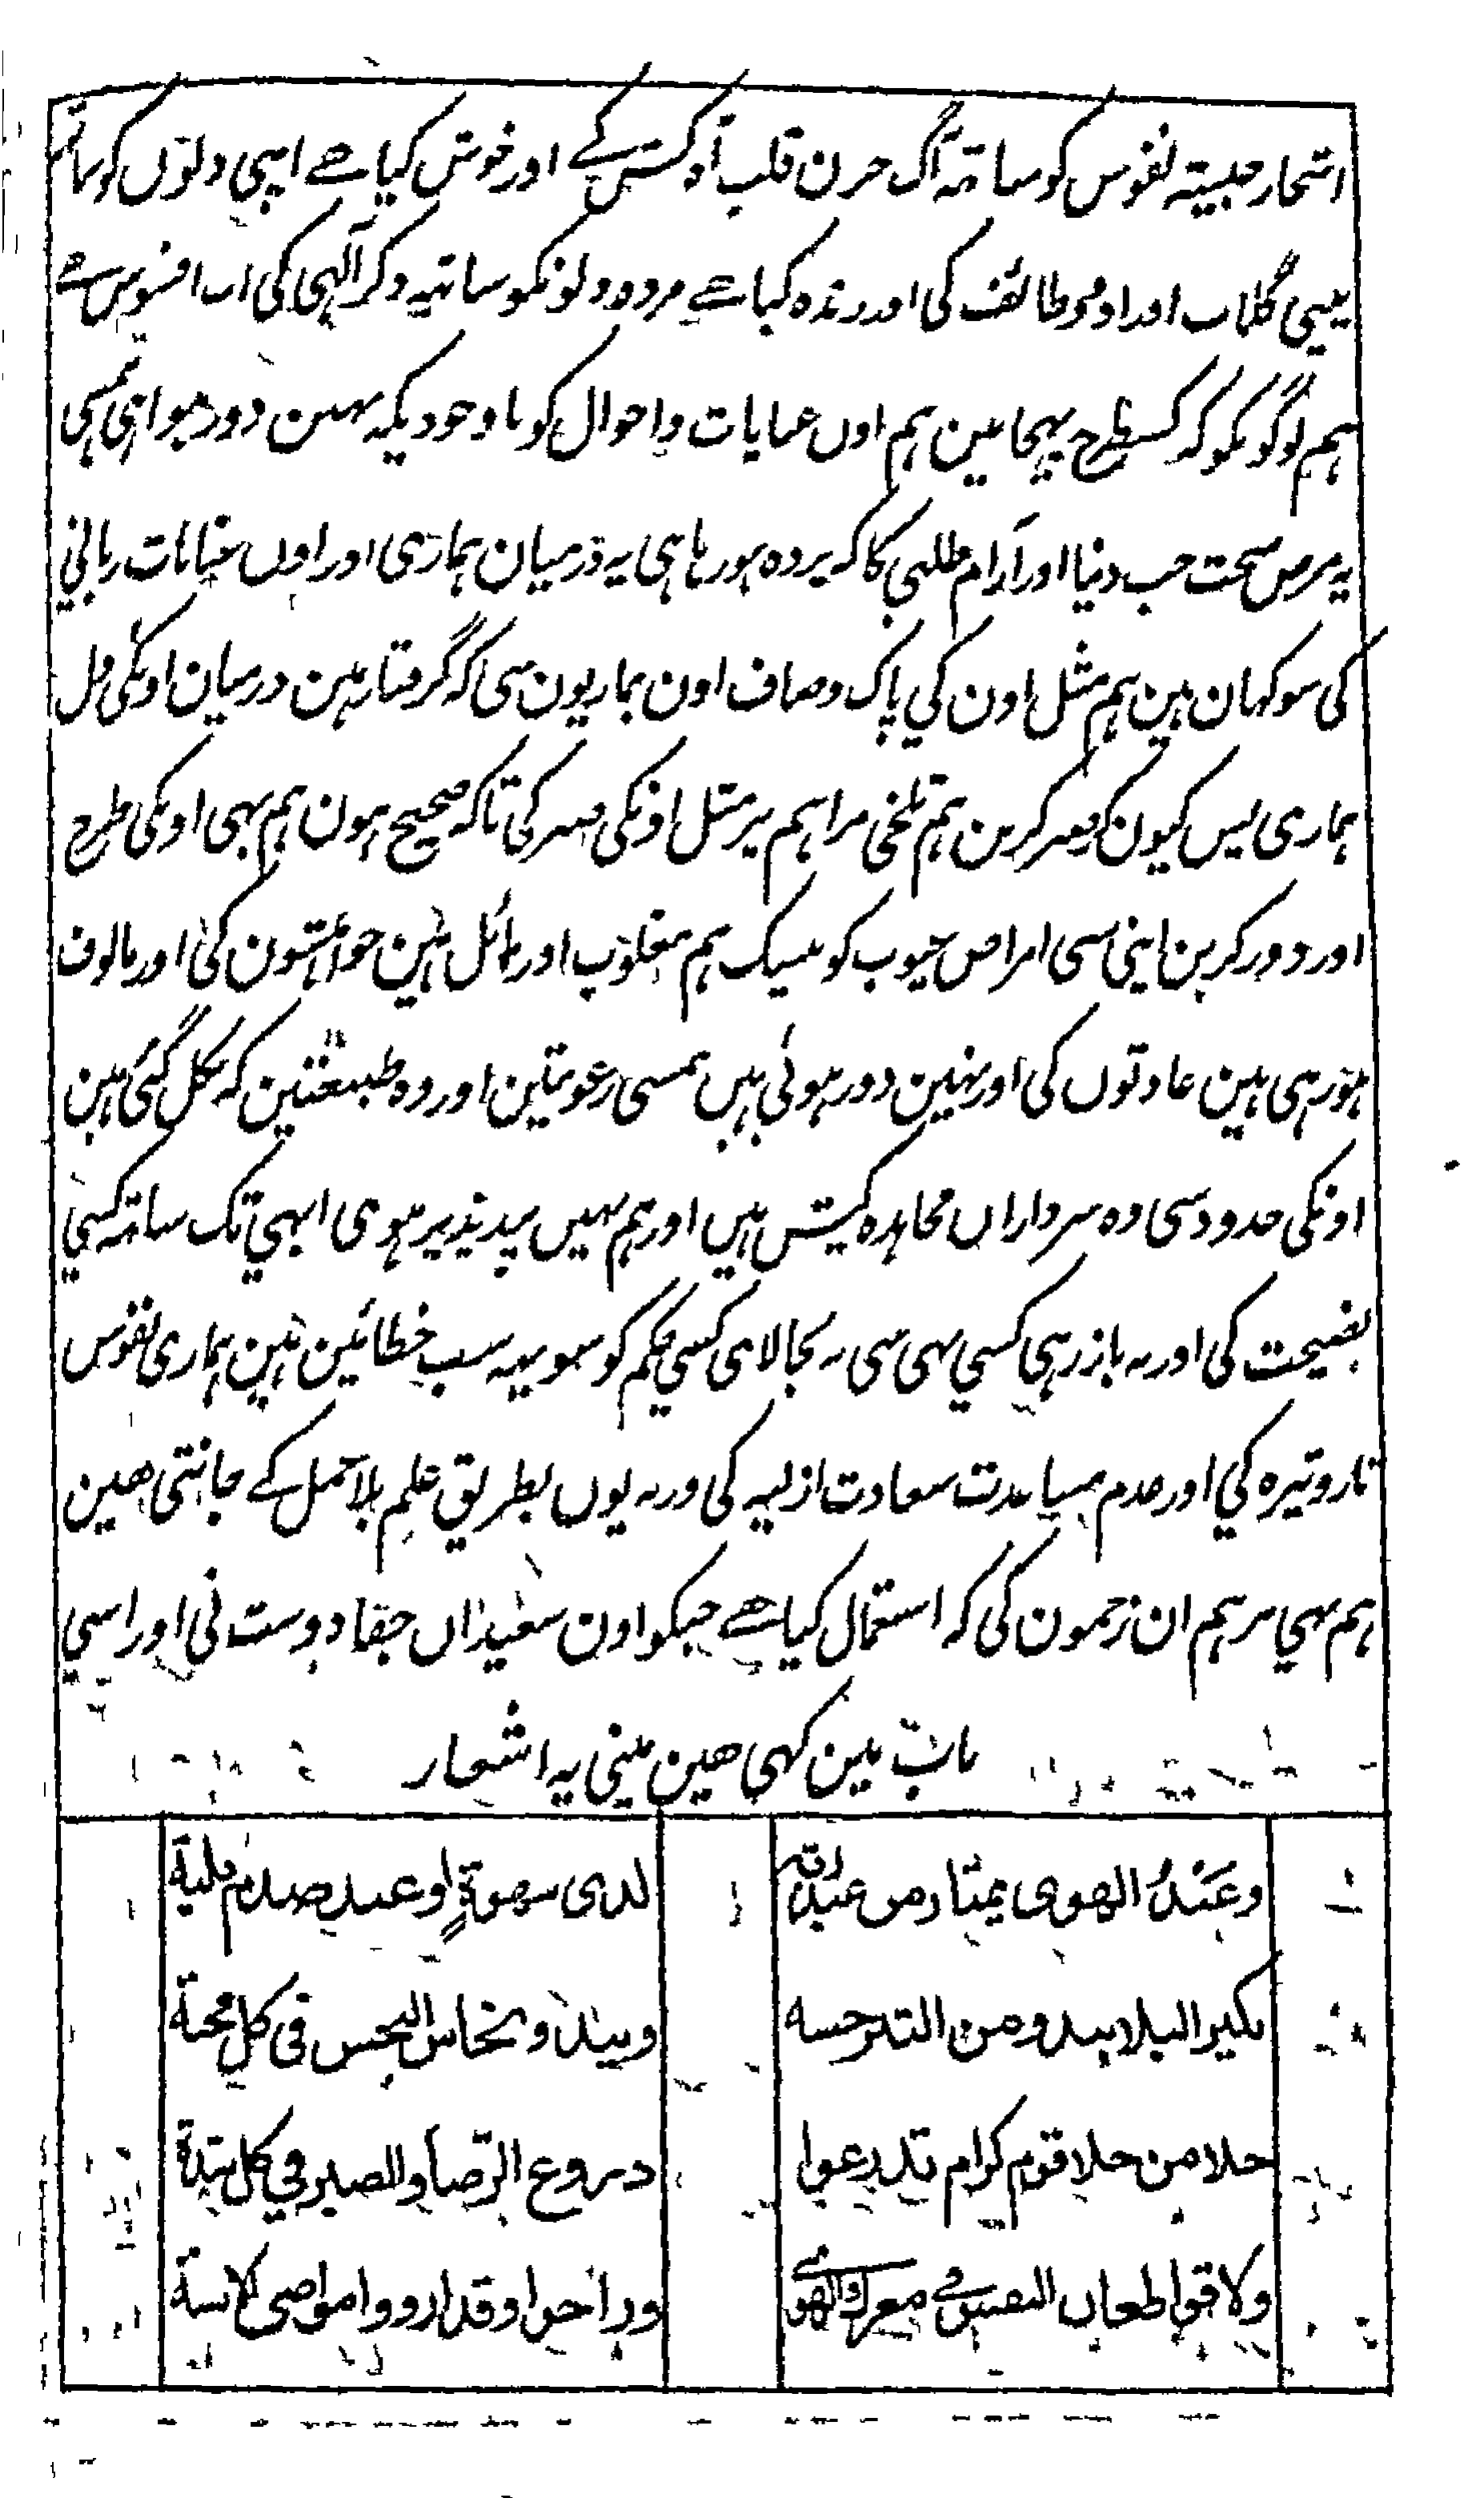 اشجار خبیثہ نفوس کو ساتہ آگ حزن قلب آدکش کے اور خوش کیا ہے اپنی دلوں کو ساتہ
پینی کلمات اوراد و وظائف کی اور زندہ کیا ہے مردہ دلونکو ساتہہ ذکر آلہی کی اب افسوس ہے
ہم لوگونکو کہ کسطرح پہچانین ہم اون عنایات و احوال کو باوجودیکہ نہین دور ہوا ہی ہمسی
یہ مرض سخت حب دنیا اور آرام طلبی کا کہ پردہ ہو رہا ہی یہ درمیان ہماری اور اون عنایات ربانی
کی سو کہان ہین ہم مثل اون کی پاک و صاف اون بماریون سی کہ گرفتار ہین درمیان اونکی دل
ہماری پس کیون کر صبر کرین ہم تلخی مراہم پر مثل اونکی صبر کی تاکہ صحیح ہون ہم بہی اونکی طرح
اور دور کرین اپنی سی امراض عیوب کو لیک ہم مغلوب اور مائل ہین خواہشون کی اور مالوف
ہو رہی ہین عادتوں کی اور نہین دور ہوئی ہیں ہمسی رعونتین اور وہ طبیعتین کہ نکل گئی ہین
اونکی حدود سی وہ سرداراں مجاہدہ کیش ہیں اور ہم نہیں پند پذیر ہوی ابہی تک ساتہ کسی
نصیحت کی اور نہ باز رہی کسی نہی سی نہ بجا لای کسی حکم کو سو یہہ سب خطائین ہین ہماری نفوس
تار و تیرہ کی اور عدم مساعدت سعادت ازلیہ کی ورنہ یوں بطریق علم بلا عمل کے جانتی ہین
ہم بہی مرہم ان زخمون کی کہ استعمال کیا ہے جسکو اون سعیداں جفا دوست نی اور اسی
باب مین کہی ہین مینی یہ اشعار
وعند الهوى يمتاز من عند لدى سهوة او عند صدم بلية
بكير البلا يبدو من التبر حسنه ويبدو نحاس النحس فى كل محنة
حلا من حلا قوم كرام تدرعوا دروع الرضا والصبر في كل شدة
ولاقوا طعان النفس في معرك الهوى وراحوا وقد ارووا مواضى